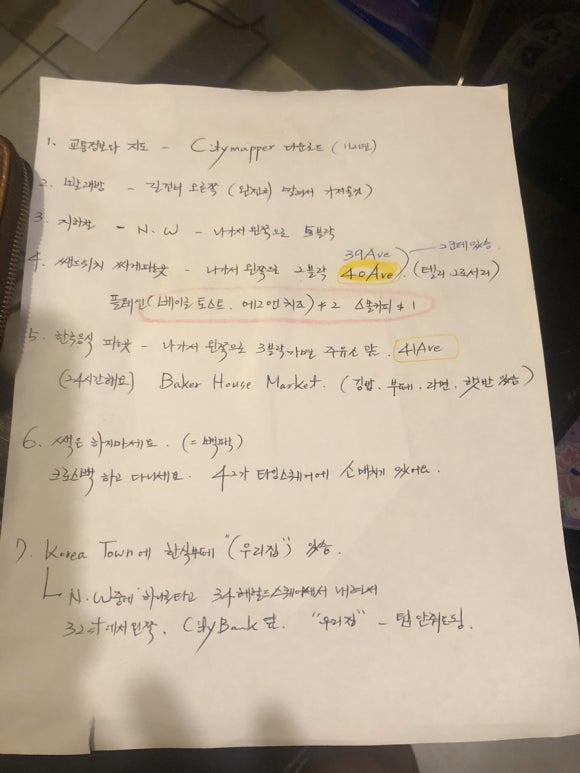 1. 교통정보와 지도 - Citymapper 다운로드
2. - 길건너 오른쪽
3. 지하철 - N.W - 나가서 왼쪽으로 5블락
4. 쌘드위치 싸게파는곳 - 나가서 왼쪽으로 2블락 39Ave 40Ave (델리 그로서리) 그근데있슴
플레인(베이글 토스트. 에그앤치즈) $2 스몰커피 $1
5. 한국음식 파는곳 - 나가서 왼쪽으로 3블락가면 주유소 맞은 41Ave
(24시간해요) Baker House Market. (김밥. 부페. 라면. 햇반 있슴)
6. 쌕은 하지마세요. (=빽팩)
크로스빽 하고 다니세요. 42가 타임스퀘어에 소매치기 있어요.
7. Korea Town에 한식부페 "(우리집)" 있슴.
N.W중에 하나타고 34 헤럴드스퀘어에서 내려서
32st에서 왼쪽. CityBank 옆. "우리집" - 팁 안줘도됨.